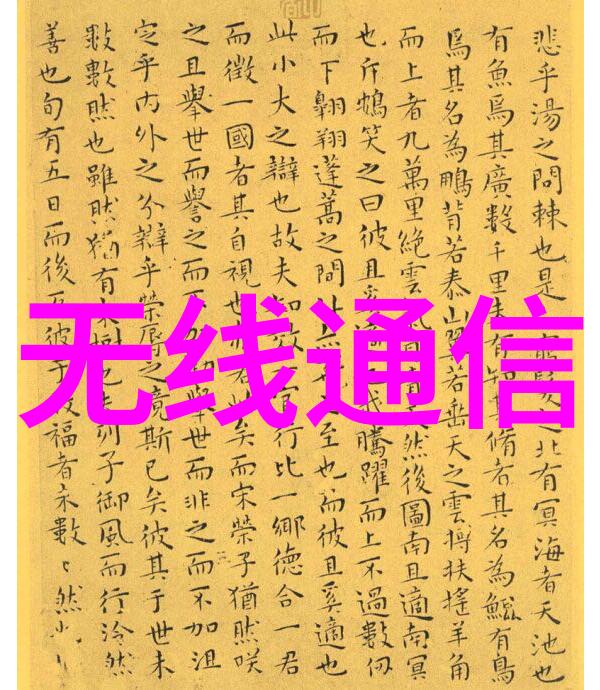 悲乎湯之問棘也是髮之北有冥海者天池也
有魚焉其廣數千里未有知其脩者其名為鯤有鳥
焉其名為鵬背若泰山翼若垂天之雲摶扶搖羊角
而上者九萬里絕雲氣天然後圖南且適南冥
也斥鴳笑之曰彼且奚我騰躍而上不過數仞
而下翱翔蓬蒿之間此至也而彼且奚適也
此小大之辯也故夫知效官行比一鄉德合一君
而徵一國者其自視也若此矣而宋榮子猶然咲
之且舉世而譽之而不加勸舉世而非之而不加沮
定乎內外之分辯乎榮辱之竟斯已矣彼其于世未
數數然也雖然猶有未樹也夫列子御風而行泠然
善也旬有五日而後反彼于致福者未數〻然也
无线通信